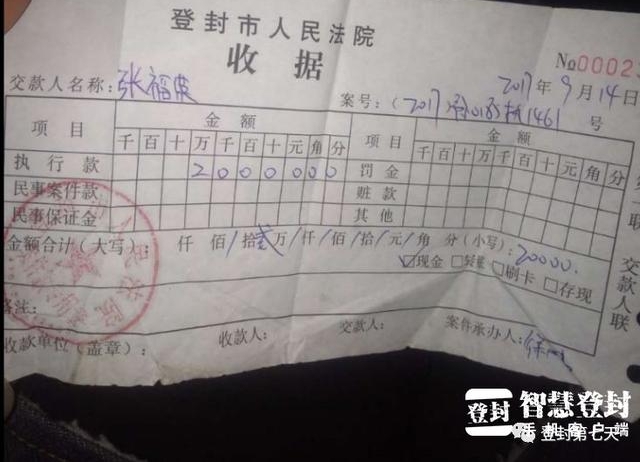 登封市人民法院
收据
No00002
2017年9月14日
交款人名称：张福
案号：（2017）0185执1461号
项目 金额 项目 金额
千百十万千百十元角分 千百十万千百十元角分
执行款 2000000 罚金
民事案件款 赃款
民事保证金 其他
金额合计（大写）： 仟 佰/拾贰万/仟/佰/拾/元/角 分（小写）：20000.
☑现金 □转账 □刷卡 □存现
备注：
收款单位（盖章）： 收款人： 交款人： 案件承办人：徐
交款人联
登封 智慧登封
手机客户端
登封第七天